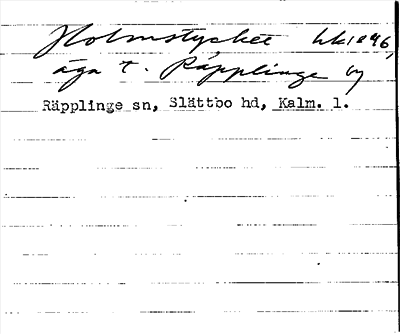 Holmstycket hk1896,
äga t. Räpplinge by
Räpplinge sn, Slättbo hd, Kalm. l.